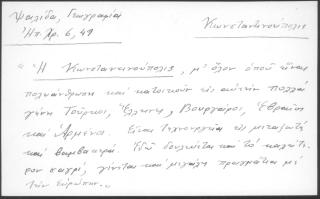 Ψαλίδα, Γεωγραφία
Ἠπ. Χρ. 6, 49
Κωνσταντινούπολις
"Ἡ Κωνσταντινούπολις, μ' ὅλον ὁποῦ εἶναι
πολυάνθρωπη καὶ κατοικοῦν εἰς αὐτὴν πολλὰ
γένη Τοῦρκοι, Ἕλληνες, Βουργάροι, Ἑβραῖοι
καὶ Ἀρμένοι. Εἶναι τεχνουργεῖα εἰς μεταξωτὰ
καὶ βαμβακερά. Ἐδῶ δουλεύεται καὶ τὸ καλύτε-
ρον σαγρί, γίνεται καὶ μεγάλη πραγματεία μὲ
τὴν Εὐρώπην..."